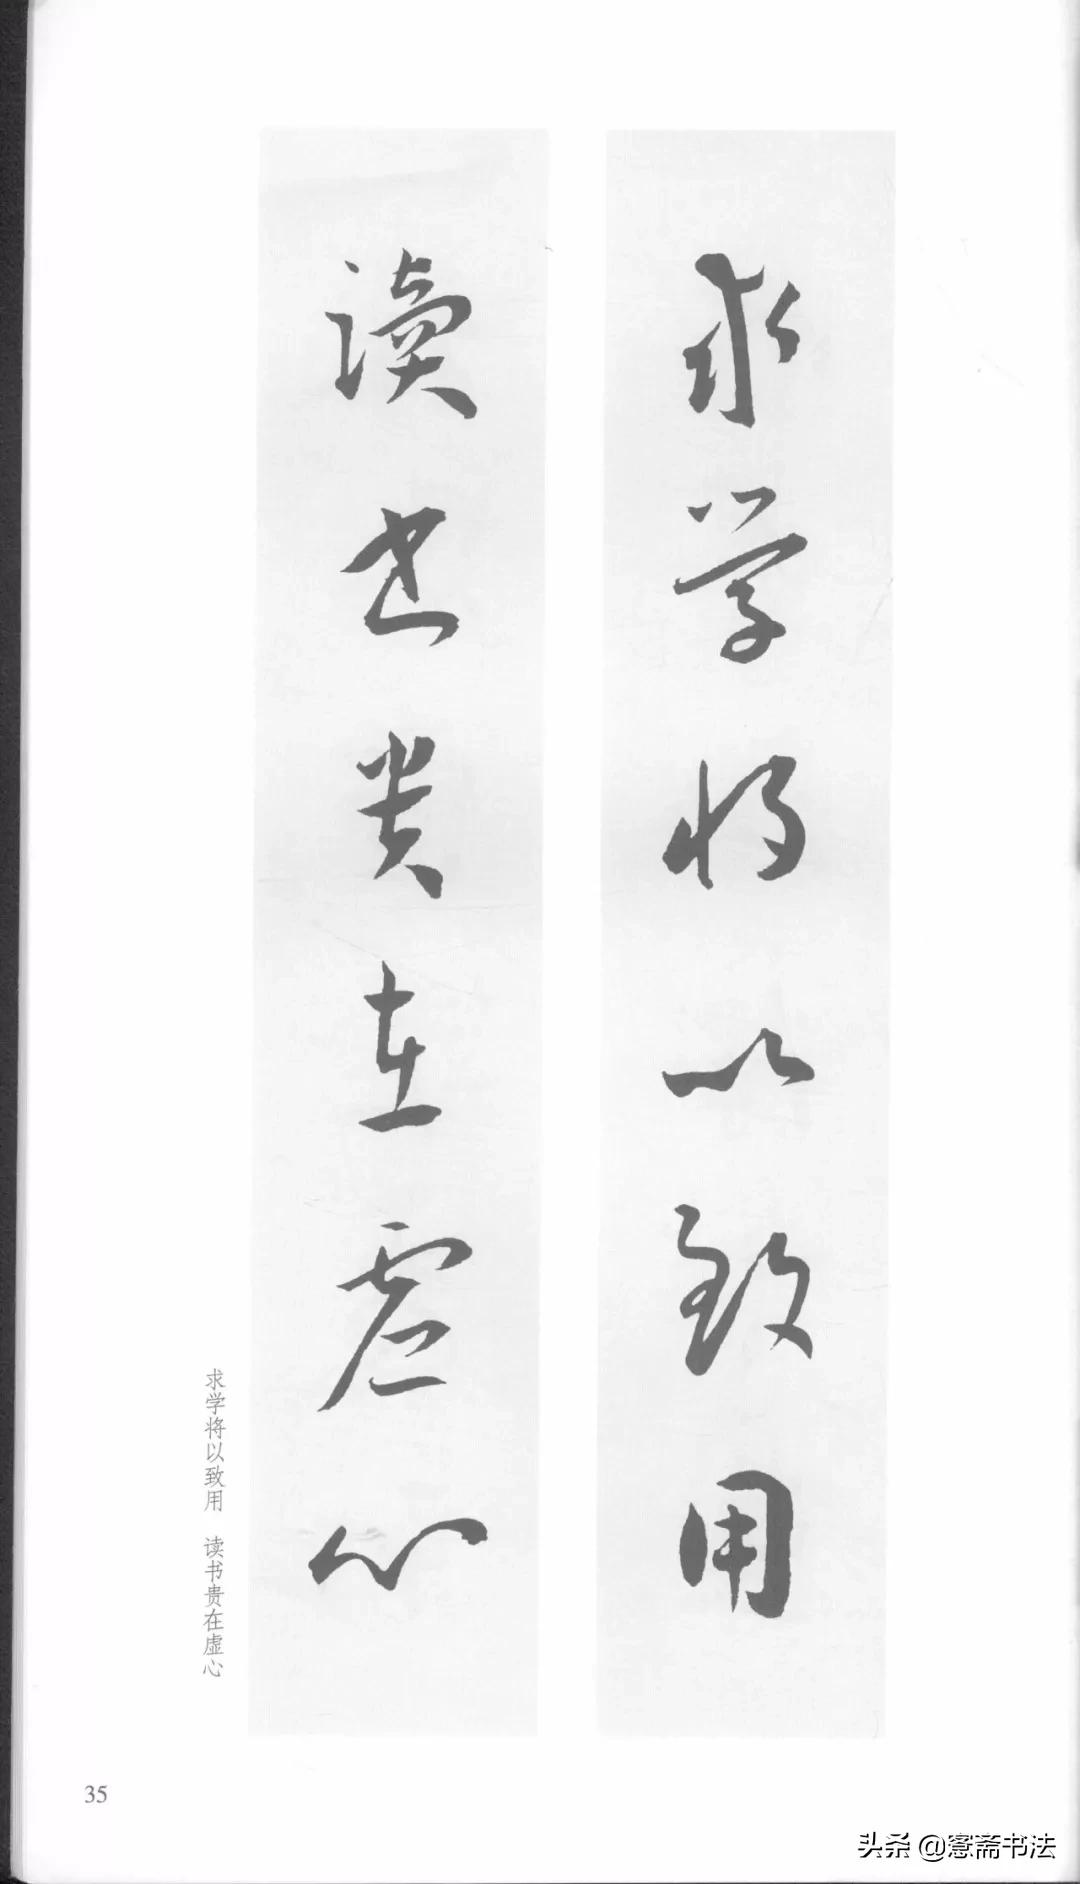 求学将以致用
读书贵在虚心
求学将以致用 读书贵在虚心
35
头条 @窓斋书法